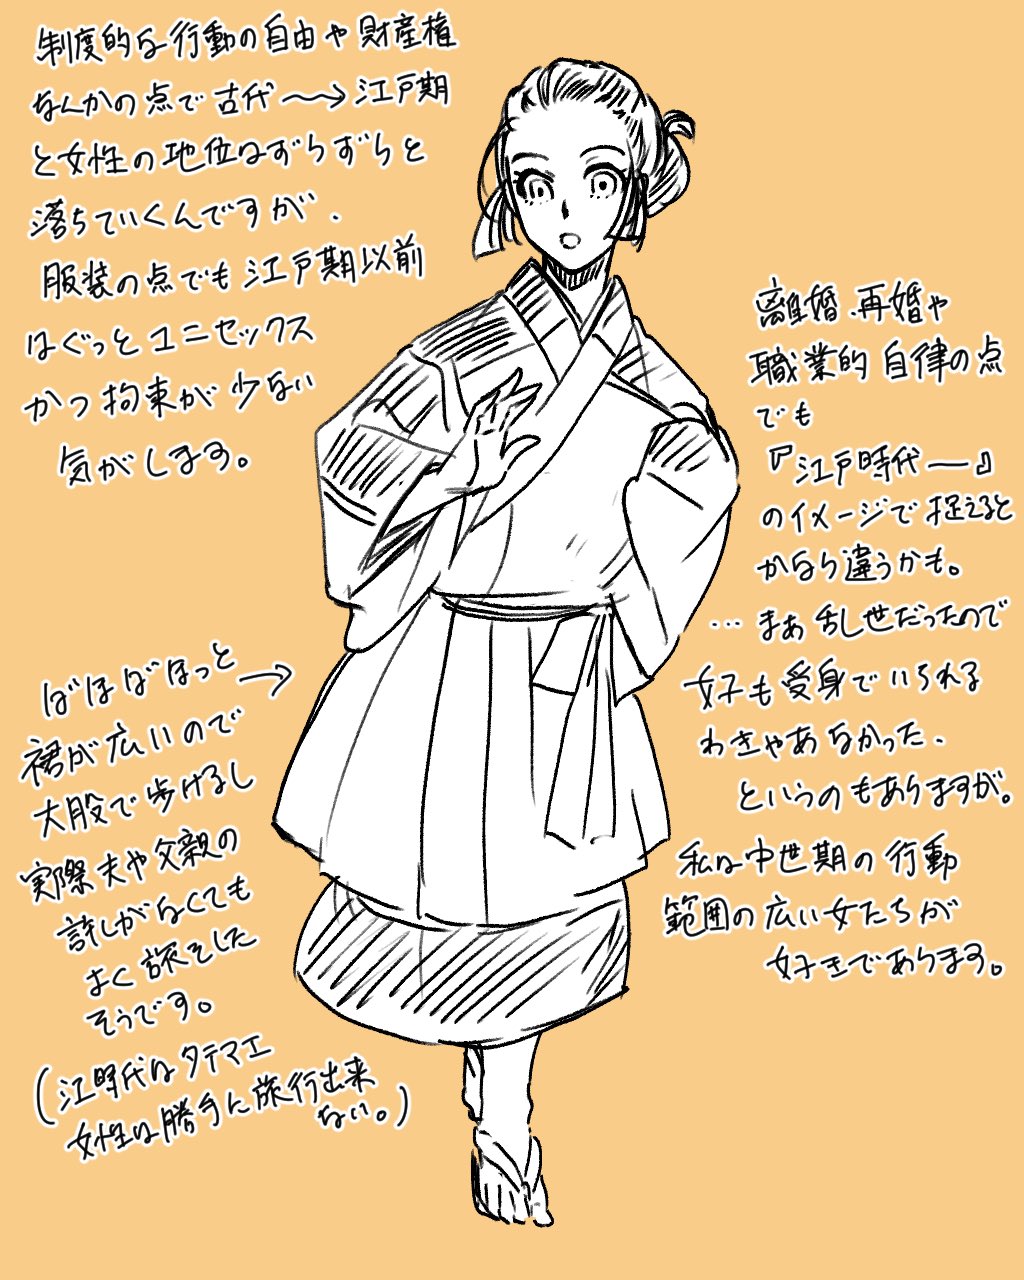 制度的な行動の自由や財産権
なんかの点で古代〜→江戸期
と女性の地位はずらずらと
落ちていくんですが、
服装の点でも江戸期以前
はぐっとユニセックス
かつ拘束が少ない
気がします。
離婚、再婚や
職業的自律の点
でも
『江戸時代ー』
のイメージで捉えると
かなり違うかも。
…まあ乱世だったので
女子も受身でいられる
わきゃあなかった、
というのもありますが。
私は中世期の行動
範囲の広い女たちが
好きであります。
ばほばほっと→
裾が広いので
大股で歩けるし
実際夫や父親の
許しがなくても
よく旅をした
そうです。
(江時代はタテマエ
女性は勝手に旅行出来
ない。)